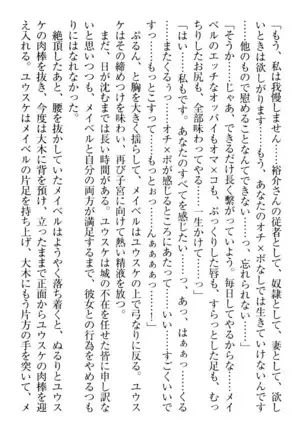 「もう、私は我慢しません……裕介さんの従者として、奴隷として、妻として、欲し
いときに欲しがります……もう、あなたのオチ×ポなしでは生きていけないんです
……他のもので慰めることなんてできない……っ、忘れられないっ」
「そうか……じゃあ、できるだけ長く繋がっていよう。毎日してやるからな……メイ
ベルのエッチなオッパイもオマ×コも、ぷっくりした唇も、すらっとした足も、むっ
ちりしたお尻も、全部味わってやる……生かけて……っ」
「はいっ……私もです。あなたのすべてを感じたい……っ、はぁっ……っ、あぁっ
……またくるぅっ……オチ×ポが感じるところにあたって……いい……すごくいいで
すっ……もっとこすって……もっとぉっ……んぁぁぁぁっ……！」
ぶるん、と胸を大きく揺らして、メイベルはユウスケの上で弓なりに反る。ユウス
ケはその締めつけを味わい、再び子宮に向けて熱い精液を放つ。
まだ、日が沈むまでは長い時間がある。ユウスケは城の不在を任せた皆に申し訳な
いと思いつつも、メイベルと自分の両方が満足するまで、彼女との行為をやめるつも
りはなかった。
絶頂したあと、腰を抜かしていたメイベルはようやく落ち着くと、ぬるりとユウス
ケの肉棒を抜き、今度は大木に背を預け、立ったままで正面からユウスケの肉棒を迎
え入れる。ユウスケはメイベルの片足を持ち上げ、大木にもう片方の手を突いて、メ